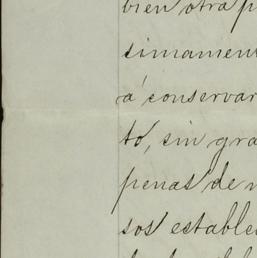 bien otra p
simamen
á conservar
to, sin gra
penas de
sos estable